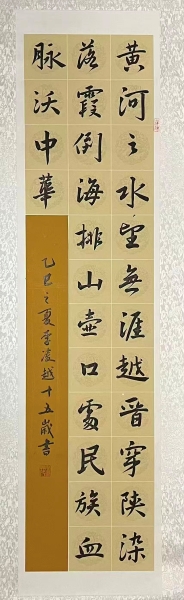 黄河之水望無涯越晉穿陝染
落霞倒海排山壺口處民族血
脉沃中華
乙巳之夏李凌越十五歲書